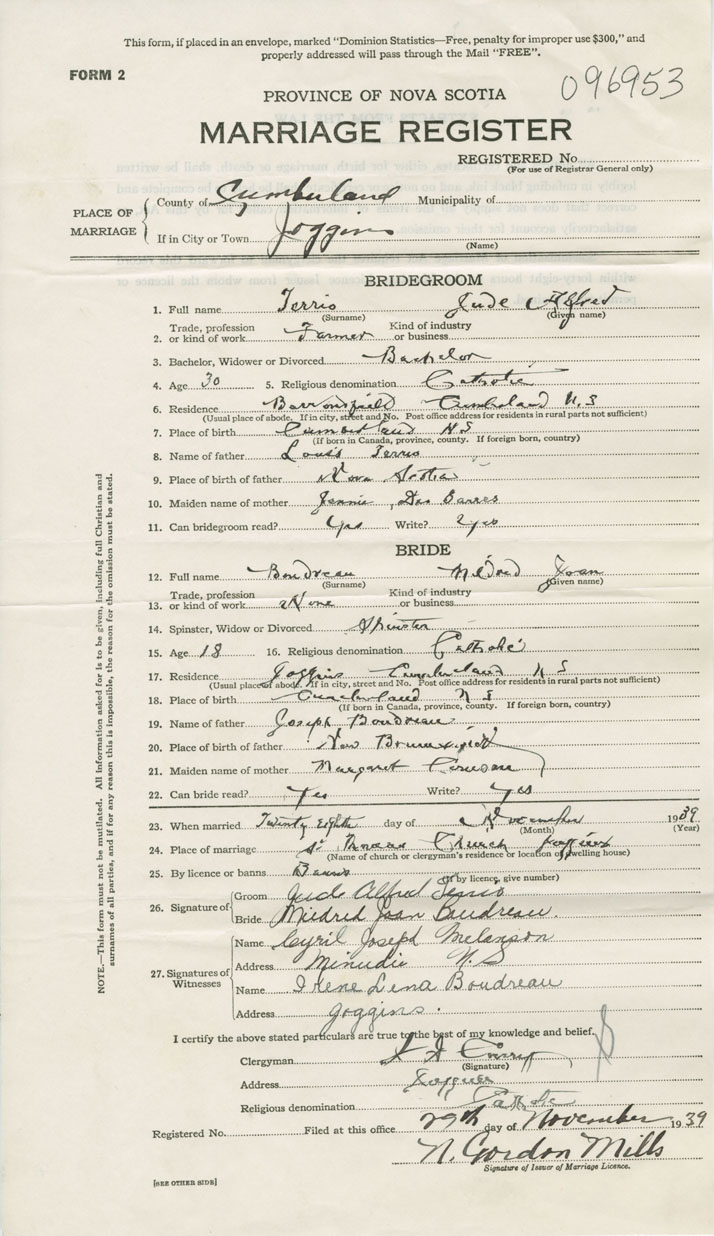 This form, if placed in an envelope, marked "Dominion Statistics—Free, penalty for improper use $300," and
properly addressed will pass through the Mail "FREE".
FORM 2
096953
PROVINCE OF NOVA SCOTIA
MARRIAGE REGISTER
REGISTERED No.
(For use of Registrar General only)
PLACE OF MARRIAGE
County of Cumberland Municipality of
If in City or Town Joggins
(Name)
BRIDEGROOM
1. Full name Terris Jude Alfred
(Surname) (Given name)
2. Trade, profession or kind of work Farmer Kind of industry or business
3. Bachelor, Widower or Divorced Bachelor
4. Age 30 5. Religious denomination Catholic
6. Residence Barronsfield Cumberland N.S
(Usual place of abode. If in city, street and No. Post office address for residents in rural parts not sufficient)
7. Place of birth Cumberland N S
(If born in Canada, province, county. If foreign born, country)
8. Name of father Louis Terris
9. Place of birth of father Nova Scotia
10. Maiden name of mother Jennie Des Barres
11. Can bridegroom read? Yes Write? Yes
BRIDE
12. Full name Boudreau Mildred Joan
(Surname) (Given name)
13. Trade, profession or kind of work None Kind of industry or business
14. Spinster, Widow or Divorced Spinster
15. Age 18 16. Religious denomination Catholic
17. Residence Joggins Cumberland N S
(Usual place of abode. If in city, street and No. Post office address for residents in rural parts not sufficient)
18. Place of birth Cumberland N S
(If born in Canada, province, county. If foreign born, country)
19. Name of father Joseph Boudreau
20. Place of birth of father New Brunswick
21. Maiden name of mother Margaret
22. Can bride read? Yes Write? Yes
23. When married Twenty Eighth day of November 1939
(Month) (Year)
24. Place of marriage St Church Joggins
(Name of church or clergyman's residence or location of dwelling house)
25. By licence or banns Banns
(If by licence, give number)
26. Signature of
Groom Jude Alfred Terris
Bride Mildred Joan Boudreau.
27. Signatures of Witnesses
Name Cyril Joseph Melanson
Address Minudie N.S
Name Irene Lena Boudreau
Address Joggins.
I certify the above stated particulars are true to the best of my knowledge and belief.
Clergyman
(Signature)
Address Joggins
Religious denomination Catholic
Registered No. Filed at this office 29th day of November 1939
N. Gordon Mills
Signature of Issuer of Marriage Licence.
[SEE OTHER SIDE]
NOTE.—This form must not be mutilated. All information asked for is to be given, including full Christian and
surnames of all parties, and if for any reason this is impossible, the reason for the omission must be stated.